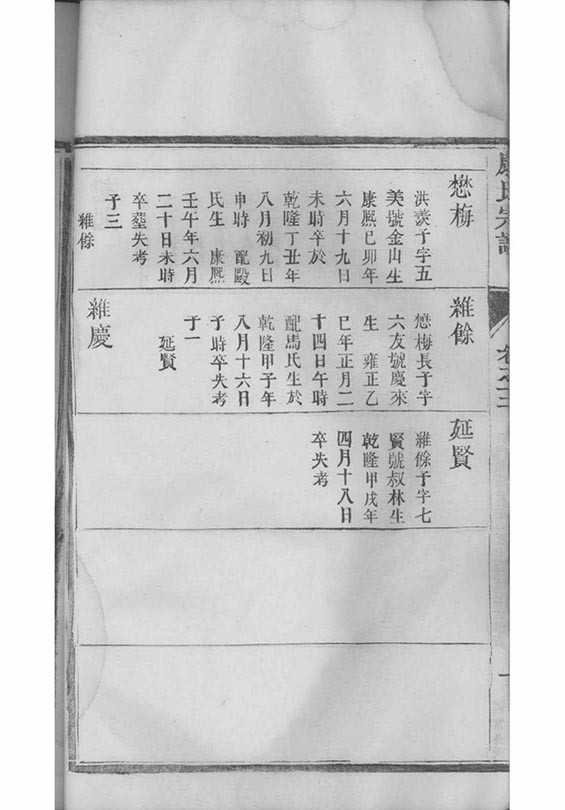 氏宗譜
卷之三
懋梅
洪羨子字五
美號金山生
康熙己卯年
六月十九日
未時卒於
乾隆丁丑年
八月初九日
申時　配毆
氏生　康熙
壬午年六月
二十日未時
卒塟失考
子三
維餘
維餘
懋梅長子字
六友號慶來
生　雍正乙
巳年正月二
十四日午時
配馬氏生於
乾隆甲子年
八月十六日
子時卒失考
子一
延賢
維慶
延賢
維餘子字七
賢號叔林生
乾隆甲戌年
四月十八日
卒失考